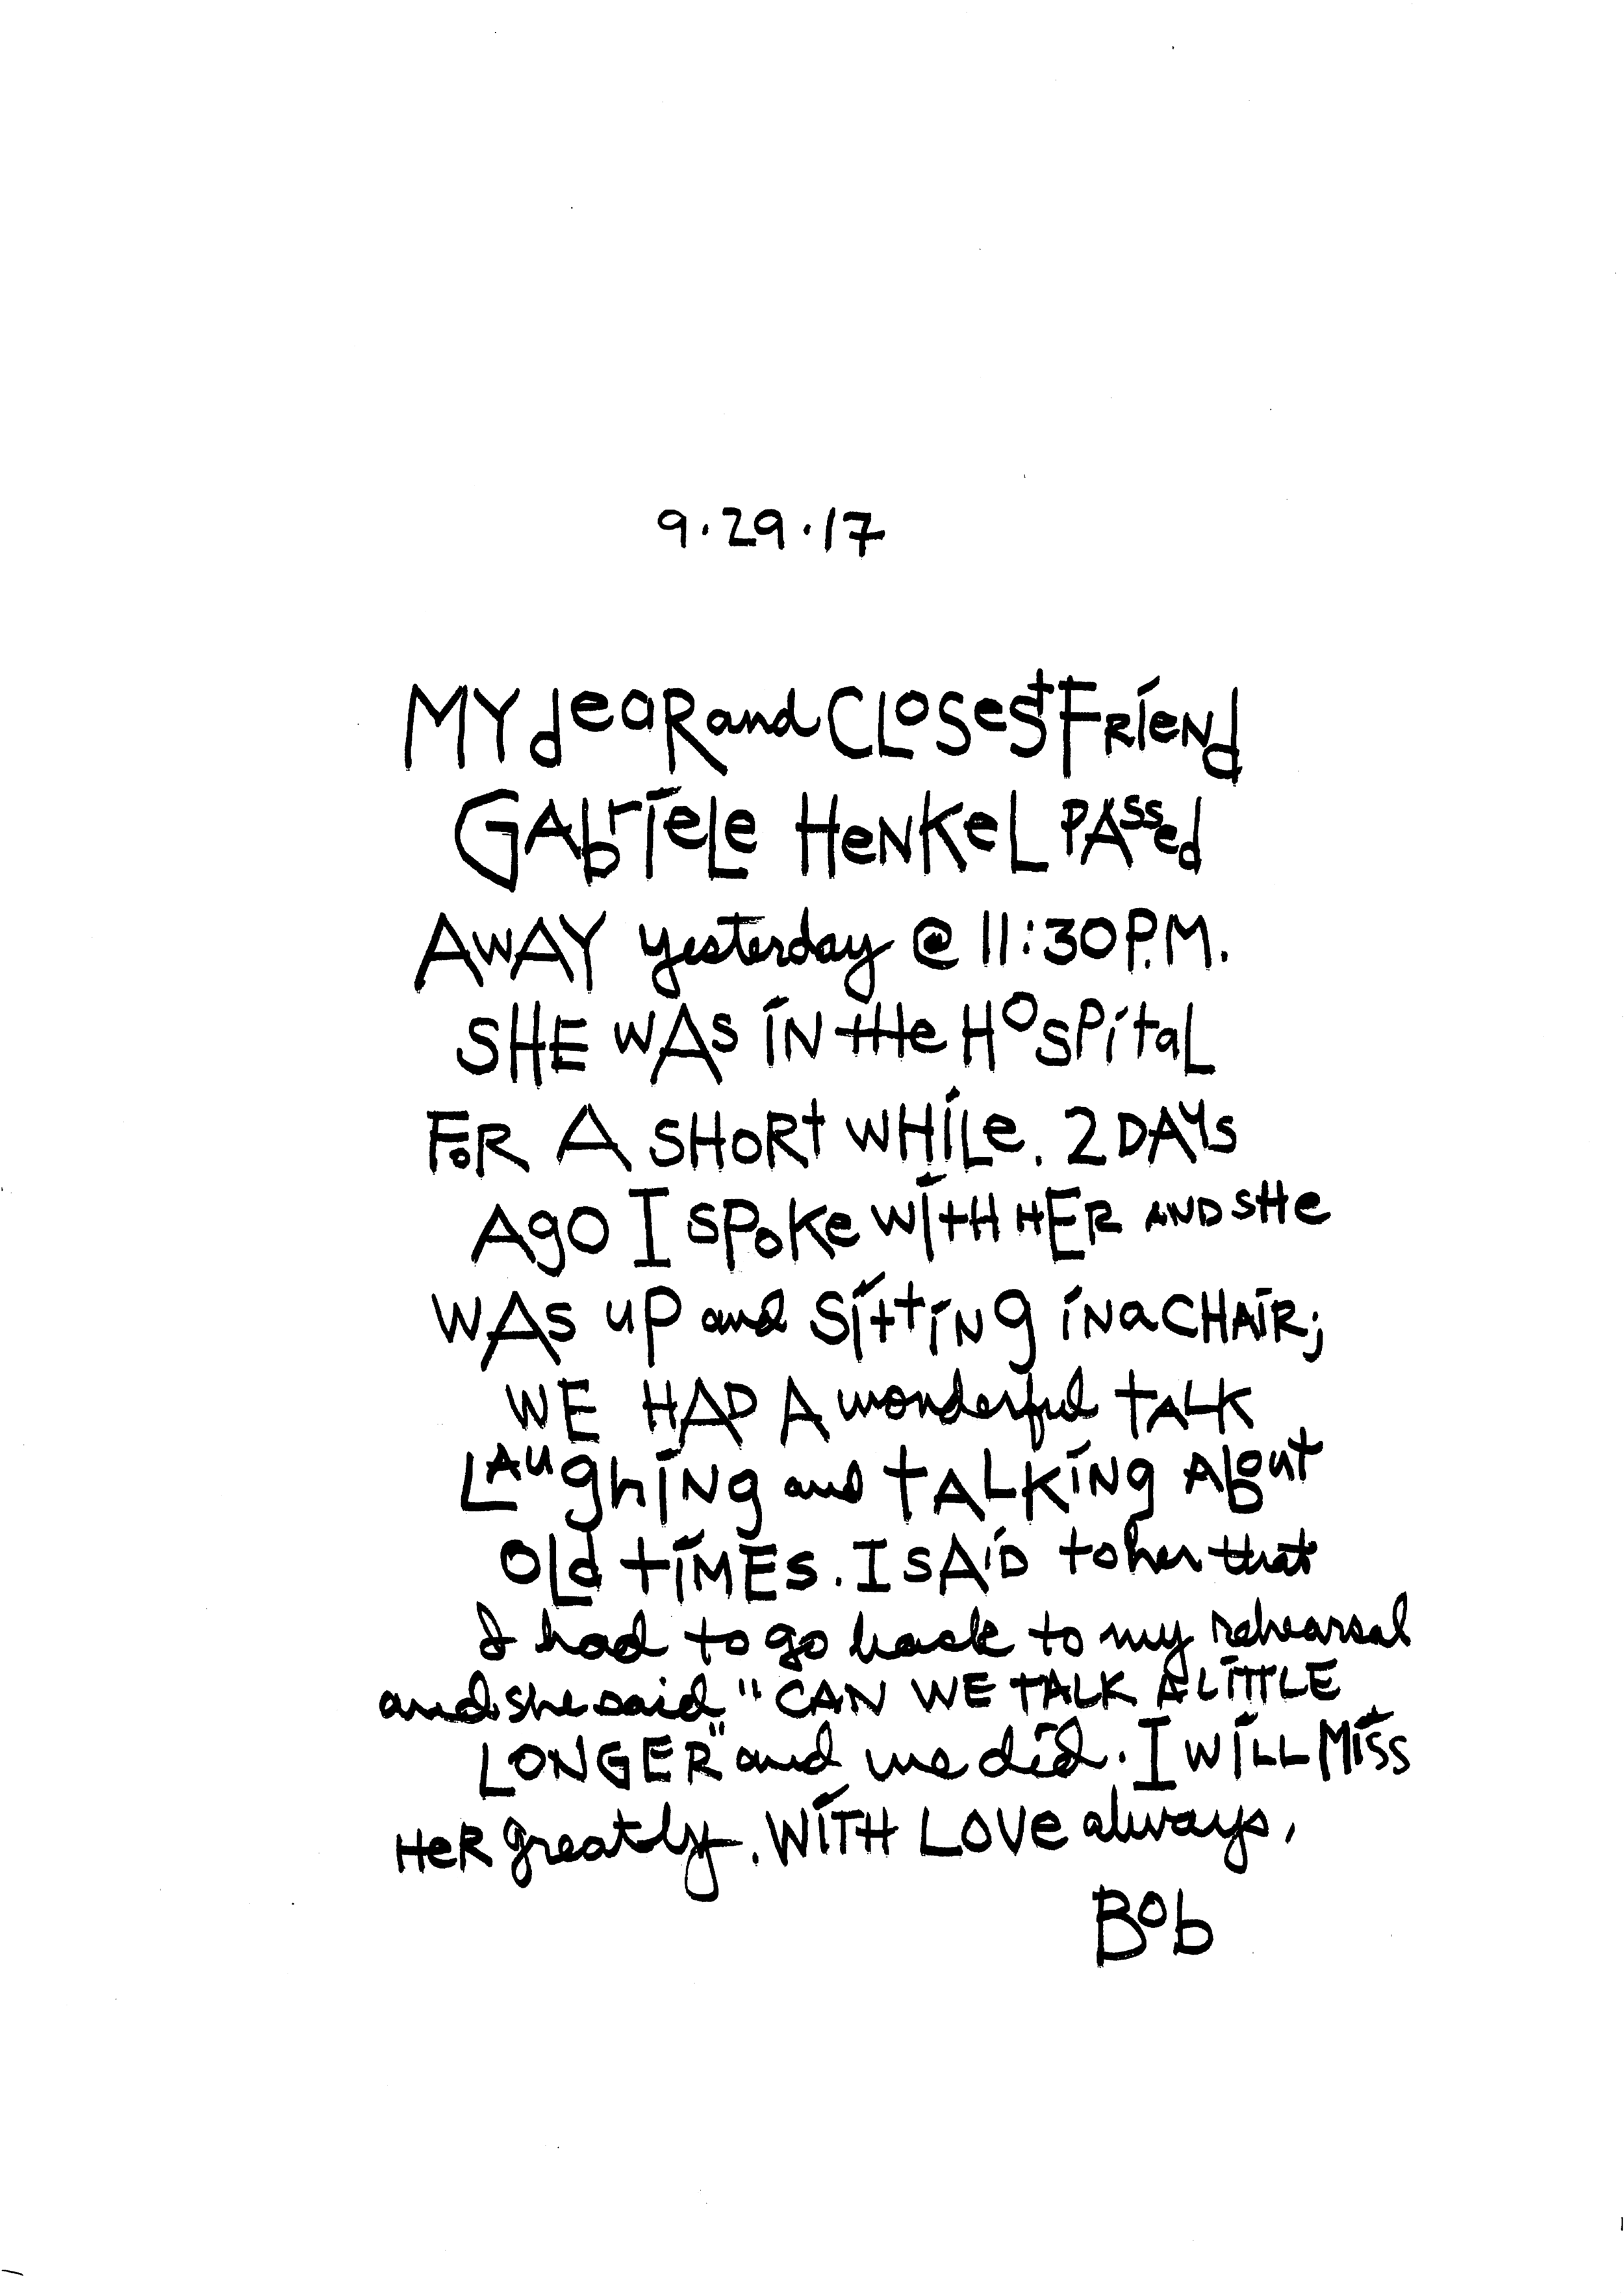 9.29.17
MY deaR and CLoSest FRiENd
GAbrieLe HeNKeL PAssed
AWAY yesterday @ 11:30 P.M.
SHE WAs iN tHe HosPitaL
FoR A SHoRt WHiLe. 2 DAYs
AgO I SPoKe WitH HER AND sHe
WAs uP and SittiNg iN a CHAiR;
WE HAD A wonderful tALK
LAughiNg and tALKiNg About
OLd tiMEs. I SAiD to her that
I had to go back to my rehearsal
and she said "CAN WE TALK A LiTTLE
LONGER" and we did. I WiLL Miss
HeR greatly. WiTH LOVe always,
Bob